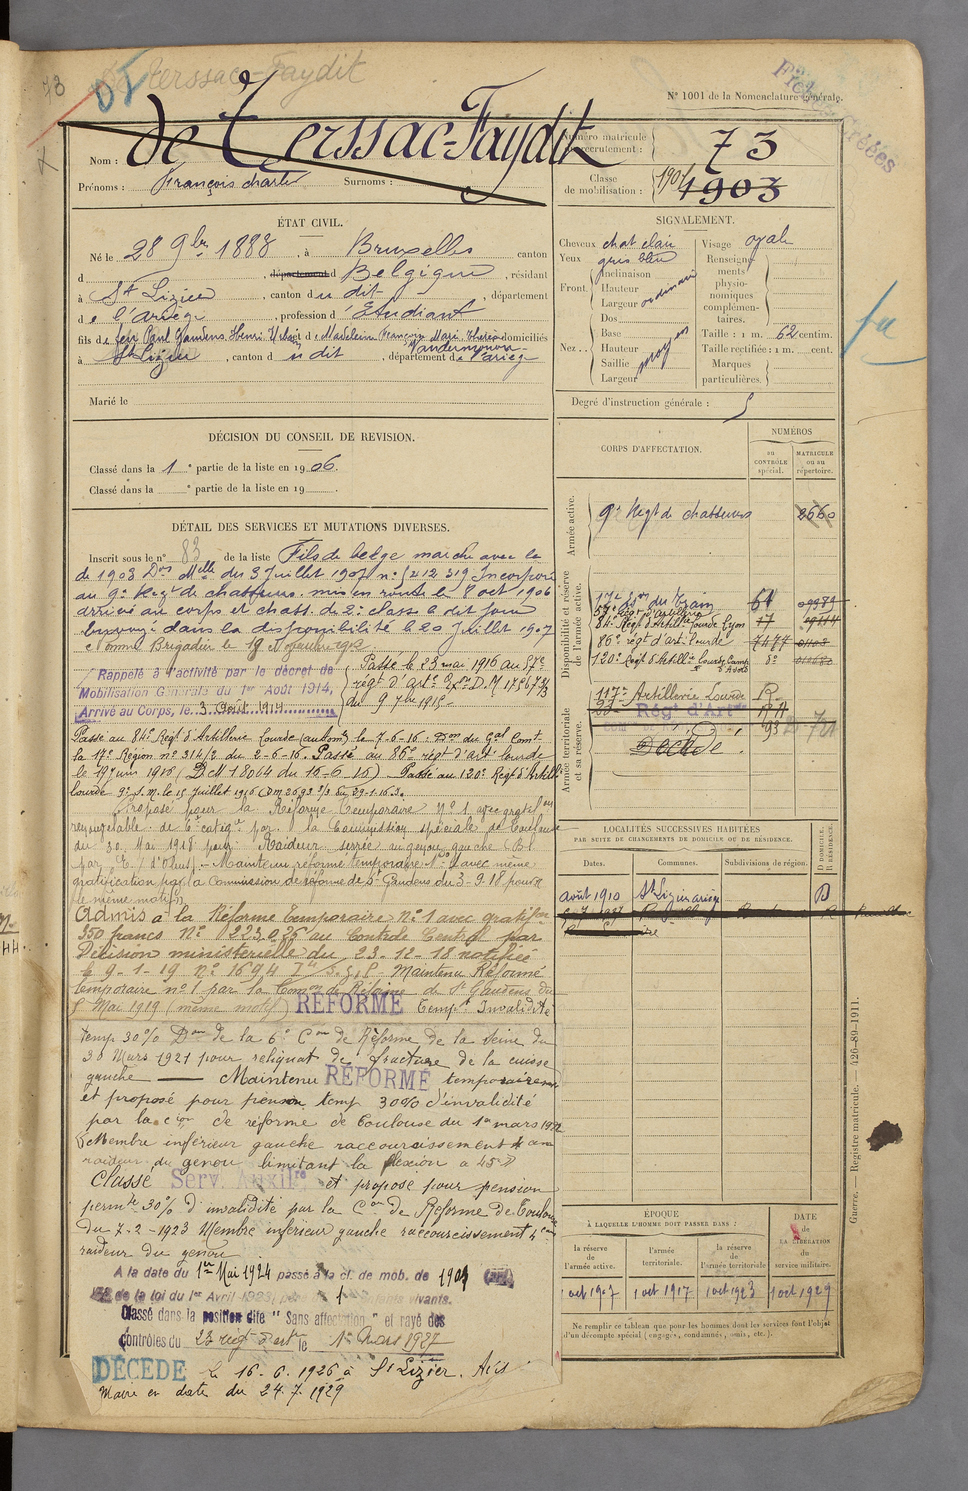 73
De Terssac-Faydit
N° 1001 de la Nomenclature générale.
Nom : de Terssac-Faydit
Prénoms : François charles Surnoms :
Numéro matricule du recrutement : 73
Classe de mobilisation : 1904 1903
ÉTAT CIVIL.
Né le 28 9bre 1888, à Bruxelles canton
d , département d Belgique, résidant
à St Lizier, canton du dit, département
de l'ariège, profession d'Etudiant
fils de feu Paul Gaudens Henri et de Madeleine Marie domiciliés
à St Lizier, canton du dit, département de l'ariège
Marié le
SIGNALEMENT.
Cheveux chat clair Visage ovale
Yeux gris bleu
Front. Inclinaison
Hauteur
Largeur ordinaire
Nez. Dos
Base
Hauteur moyen
Saillie
Largeur
Renseignements physionomiques complémentaires.
Taille : 1 m. 62 centim.
Taille rectifiée : 1 m. cent.
Marques particulières.
Degré d'instruction générale : 5
DÉCISION DU CONSEIL DE REVISION.
Classé dans la 1e partie de la liste en 1906.
Classé dans la e partie de la liste en 19 .
CORPS D'AFFECTATION.
NUMÉROS
au CONTRÔLE spécial.
MATRICULE ou au répertoire.
Armée active.
9e Regt de chasseurs 2660
Disponibilité et réserve de l'armée active.
17e Eon du Train 61 09989
57e Régt d'artillerie
84e Régt d'Artillerie Lourde Lyon 17
86e régt d'art. Lourde 7477
120e Regt d'Artillie Lourde
Armée territoriale et sa réserve.
117e Artillerie Lourde R
Régt d'Artie
Décédé
DÉTAIL DES SERVICES ET MUTATIONS DIVERSES.
Inscrit sous le n° 83 de la liste Fils de belge marche avec la
de 1903 Don Melle du 3 Juillet 1907 n° 212 319 Incorporé
au 9e Régt de chasseurs. mis en route le 8 oct 1906
arrivé au corps et chasr de 2e classe le dit jour
Envoyé dans la disponibilité le 20 Juillet 1907
Nommé Brigadier le 19 Novembre 1912
Rappelé à l'activité par le décret de
Mobilisation Générale du 1er Août 1914,
Arrivé au Corps, le 3 Août 1914
Passé le 23 mai 1916 au 57e
régt d'arte Exon D.M 17567 3/3
du 9 7bre 1915
Passé au 84e Régt d'Artillerie Lourde le 7-6-16. Don du Gal Comt
la 17e Région n° 314/2 du 2-6-16. Passé au 86e régt d'art lourde
le 19 juin 1916 (DM 18064 du 15-6-16) Passé au 120e Régt d'Artillie
lourde le 15 Juillet 1916
Proposé pour la Réforme Temporaire n° 1 avec gratifon
renouvelable de 6e catége par la Commission spéciale de Toulouse
du 30 Mai 1918 pour Raideur serrée au genou gauche
Maintenu réforme temporaire N° 1 avec même
gratification par la Commission de réforme de St Gaudens du 3-9-18 pour
le même motif
Admis à la Réforme Temporaire n° 1 avec gratifon
350 francs N° 223.035 au Contrôle Central par
Décision ministérielle du 23-12-18 notifiée
le 9-1-19 n° 1694 Maintenu Réformé
Temporaire n° 1 par la Comon de Réforme de St Gaudens du
8 Mai 1919 (même motif) RÉFORMÉ Tempre Invalidité
temp. 30% Don de la 6e Con de Réforme de la Seine du
30 Mars 1921 pour reliquat de fracture de la cuisse
gauche — Maintenu RÉFORMÉ temporairement
et proposé pour pension temp 30% d'invalidité
par la con de réforme de Toulouse du 1er mars 1922
Membre inférieur gauche raccourcissement 4 cm
raideur du genou limitant la flexion à 45°
Classé Serv. Auxilre et proposé pour pension
permte 30% d'invalidité par la Con de Réforme de Toulouse
du 7-2-1923 Membre inférieur gauche raccourcissement 4 cm
raideur du genou
A la date du 1er Mai 1924 passé à la cl. de mob. de 1904 (art.
de la loi du 1er Avril 1923, père de 1 enfants vivants.
Classé dans la position dite "Sans affectation" et rayé des
contrôles du 23 régt d'art le 1er Mars 1927
DÉCÉDÉ le 16.6.1926 à St Lizier. Avis
Maire en date du 24.7.1929
LOCALITÉS SUCCESSIVES HABITÉES
PAR SUITE DE CHANGEMENTS DE DOMICILE OU DE RÉSIDENCE.
Dates. Communes. Subdivisions de région. D DOMICILE. R RÉSIDENCE.
août 1910 St Lizier ariège D
ÉPOQUE
À LAQUELLE L'HOMME DOIT PASSER DANS :
DATE de LA LIBÉRATION du service militaire.
la réserve de l'armée active.
l'armée territoriale.
la réserve de l'armée territoriale
1 oct 1907 1 oct 1917 1 oct 1923 1 oct 1929
Ne remplir ce tableau que pour les hommes dont les services font l'objet
d'un décompte spécial (engagés, condamnés, omis, etc.).
Guerre. — Registre matricule. — 426-89-1911.